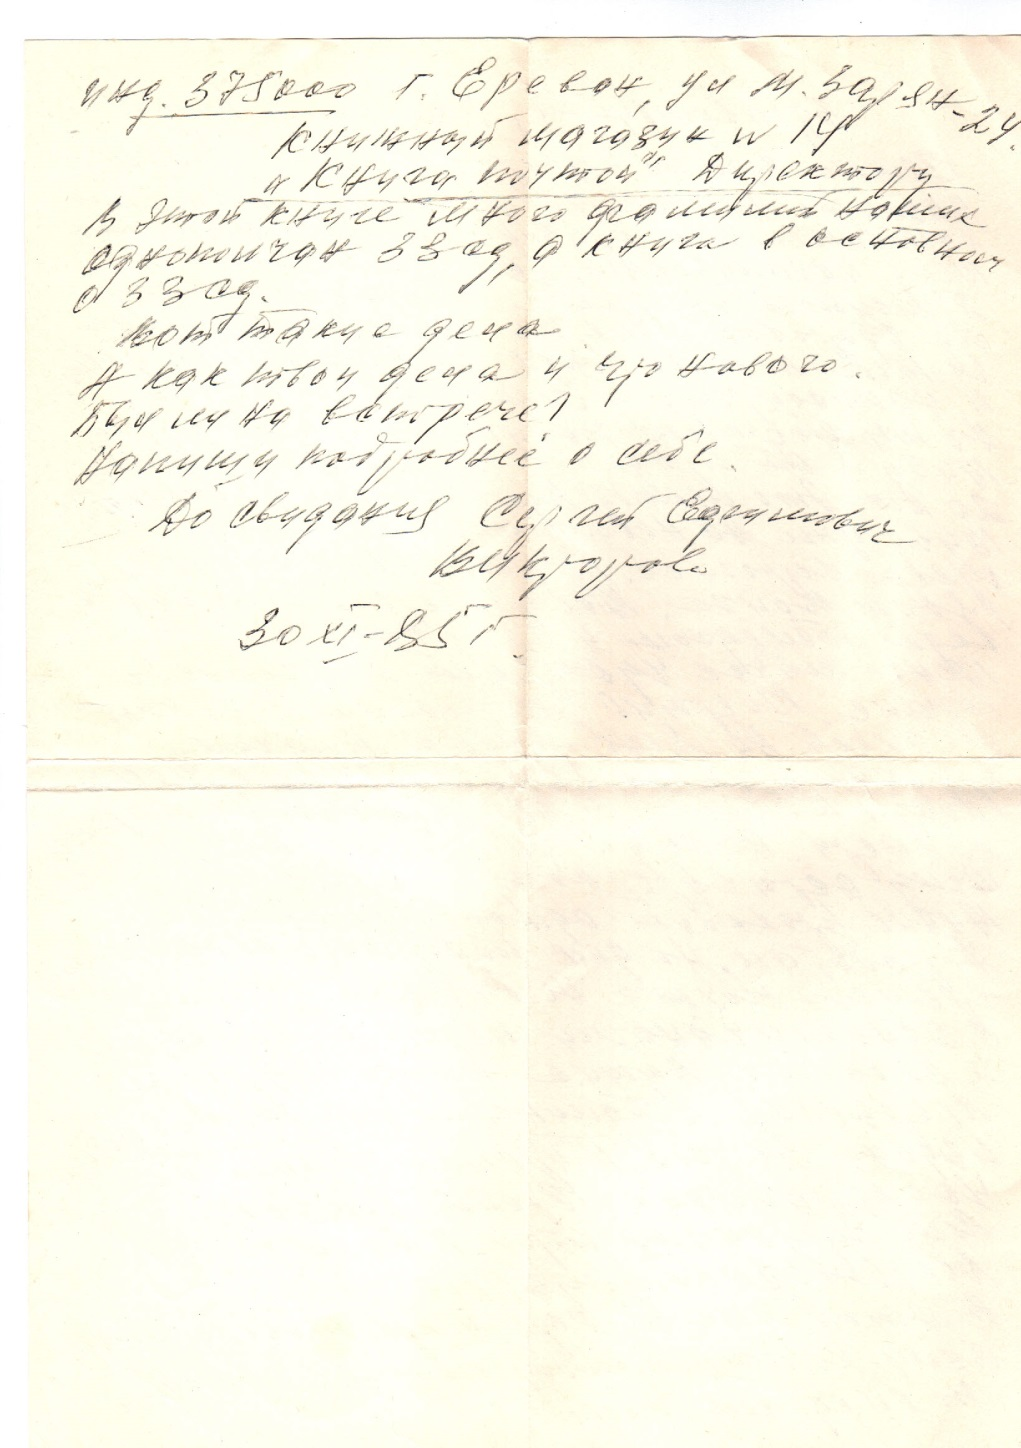 инд. 375000 г. Ереван, ул М. Зарян-24.
Книжный магазин №
"Книга почтой" Директору
В этой книге много фамилий наших
однополчан 33 сд, а книга в основном
о 33 сд.
Вот такие дела
А как твои дела и что нового.
Был ли на встрече?
Напиши подробнее о себе.
До свидания Сергей
Викторов
30 XI-85 г.